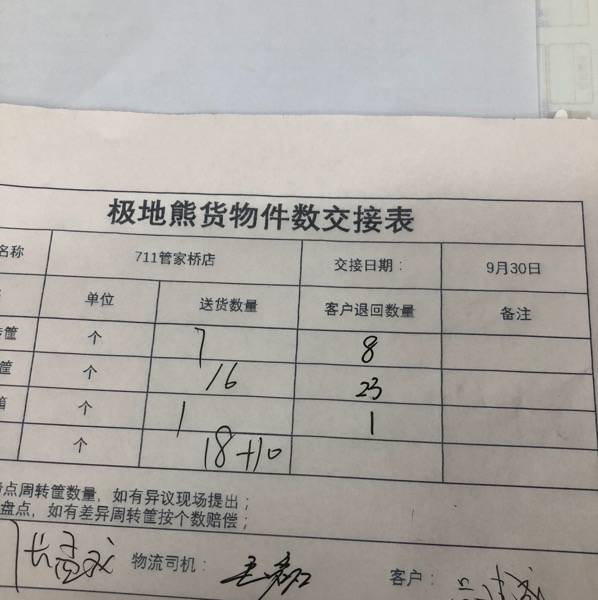 极地熊货物件数交接表
名称 711管家桥店 交接日期： 9月30日
单位 送货数量 客户退回数量 备注
筐 个 7 8
筐 个 16 23
箱 个 1 1
个 18+10
点周转筐数量，如有异议现场提出；
盘点，如有差异周转筐按个数赔偿；
物流司机： 客户：